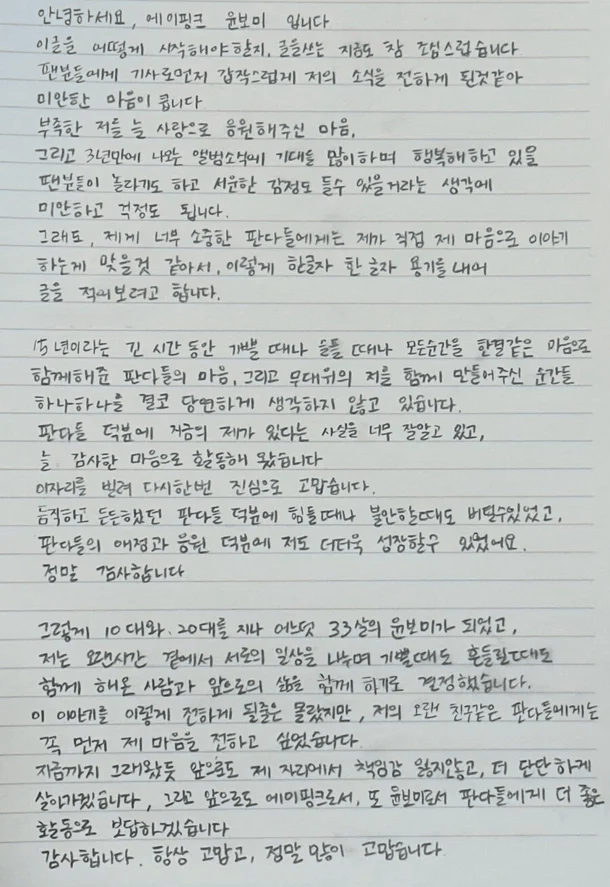 안녕하세요, 에이핑크 윤보미 입니다
이글을 어떻게 시작해야할지, 글을쓰는 지금도 참 조심스럽습니다
팬분들에게 기사로먼저 갑작스럽게 저의 소식을 전하게 된것같아
미안한 마음이 큽니다
부족한 저를 늘 사랑으로 응원해주신 마음,
그리고 3년만에 나오는 앨범소식에 기대를 많이하며 행복해하고 있을
팬분들이 놀라기도 하고 서운한 감정도 들수 있을거라는 생각에
미안하고 걱정도 됩니다.
그래도, 제게 너무 소중한 판다들에게는 제가 직접 제 마음으로 이야기
하는게 맞을것 같아서, 이렇게 한글자 한 글자 용기를 내어
글을 적어보려고 합니다.
15년이라는 긴 시간 동안 기쁠 때나 슬플 때나 모든순간을 한결같은 마음으로
함께해준 판다들의 마음, 그리고 무대위의 저를 함께 만들어주신 순간들
하나하나를 결코 당연하게 생각하지 않고 있습니다.
판다들 덕분에 지금의 제가 있다는 사실을 너무 잘알고 있고,
늘 감사한 마음으로 활동해 왔습니다
이자리를 빌려 다시한번 진심으로 고맙습니다.
묵직하고 든든했던 판다들 덕분에 힘들때나 불안할때도 버틸수있었고,
판다들의 애정과 응원 덕분에 저도 더더욱 성장할수 있었어요.
정말 감사합니다
그렇게 10대와, 20대를 지나 어느덧 33살의 윤보미가 되었고,
저는 오랜시간 곁에서 서로의 일상을 나누며 기쁠때도 흔들릴때도
함께 해온 사람과 앞으로의 삶을 함께 하기로 결정했습니다.
이 이야기를 이렇게 전하게 될줄은 몰랐지만, 저의 오랜 친구같은 판다들에게는
꼭 먼저 제 마음을 전하고 싶었습니다.
지금까지 그래왔듯 앞으로도 제 자리에서 책임감 잃지않고, 더 단단하게
살아가겠습니다, 그리고 앞으로도 에이핑크로서, 또 윤보미로서 판다들에게 더 좋은
활동으로 보답하겠습니다
감사합니다. 항상 고맙고, 정말 많이 고맙습니다.